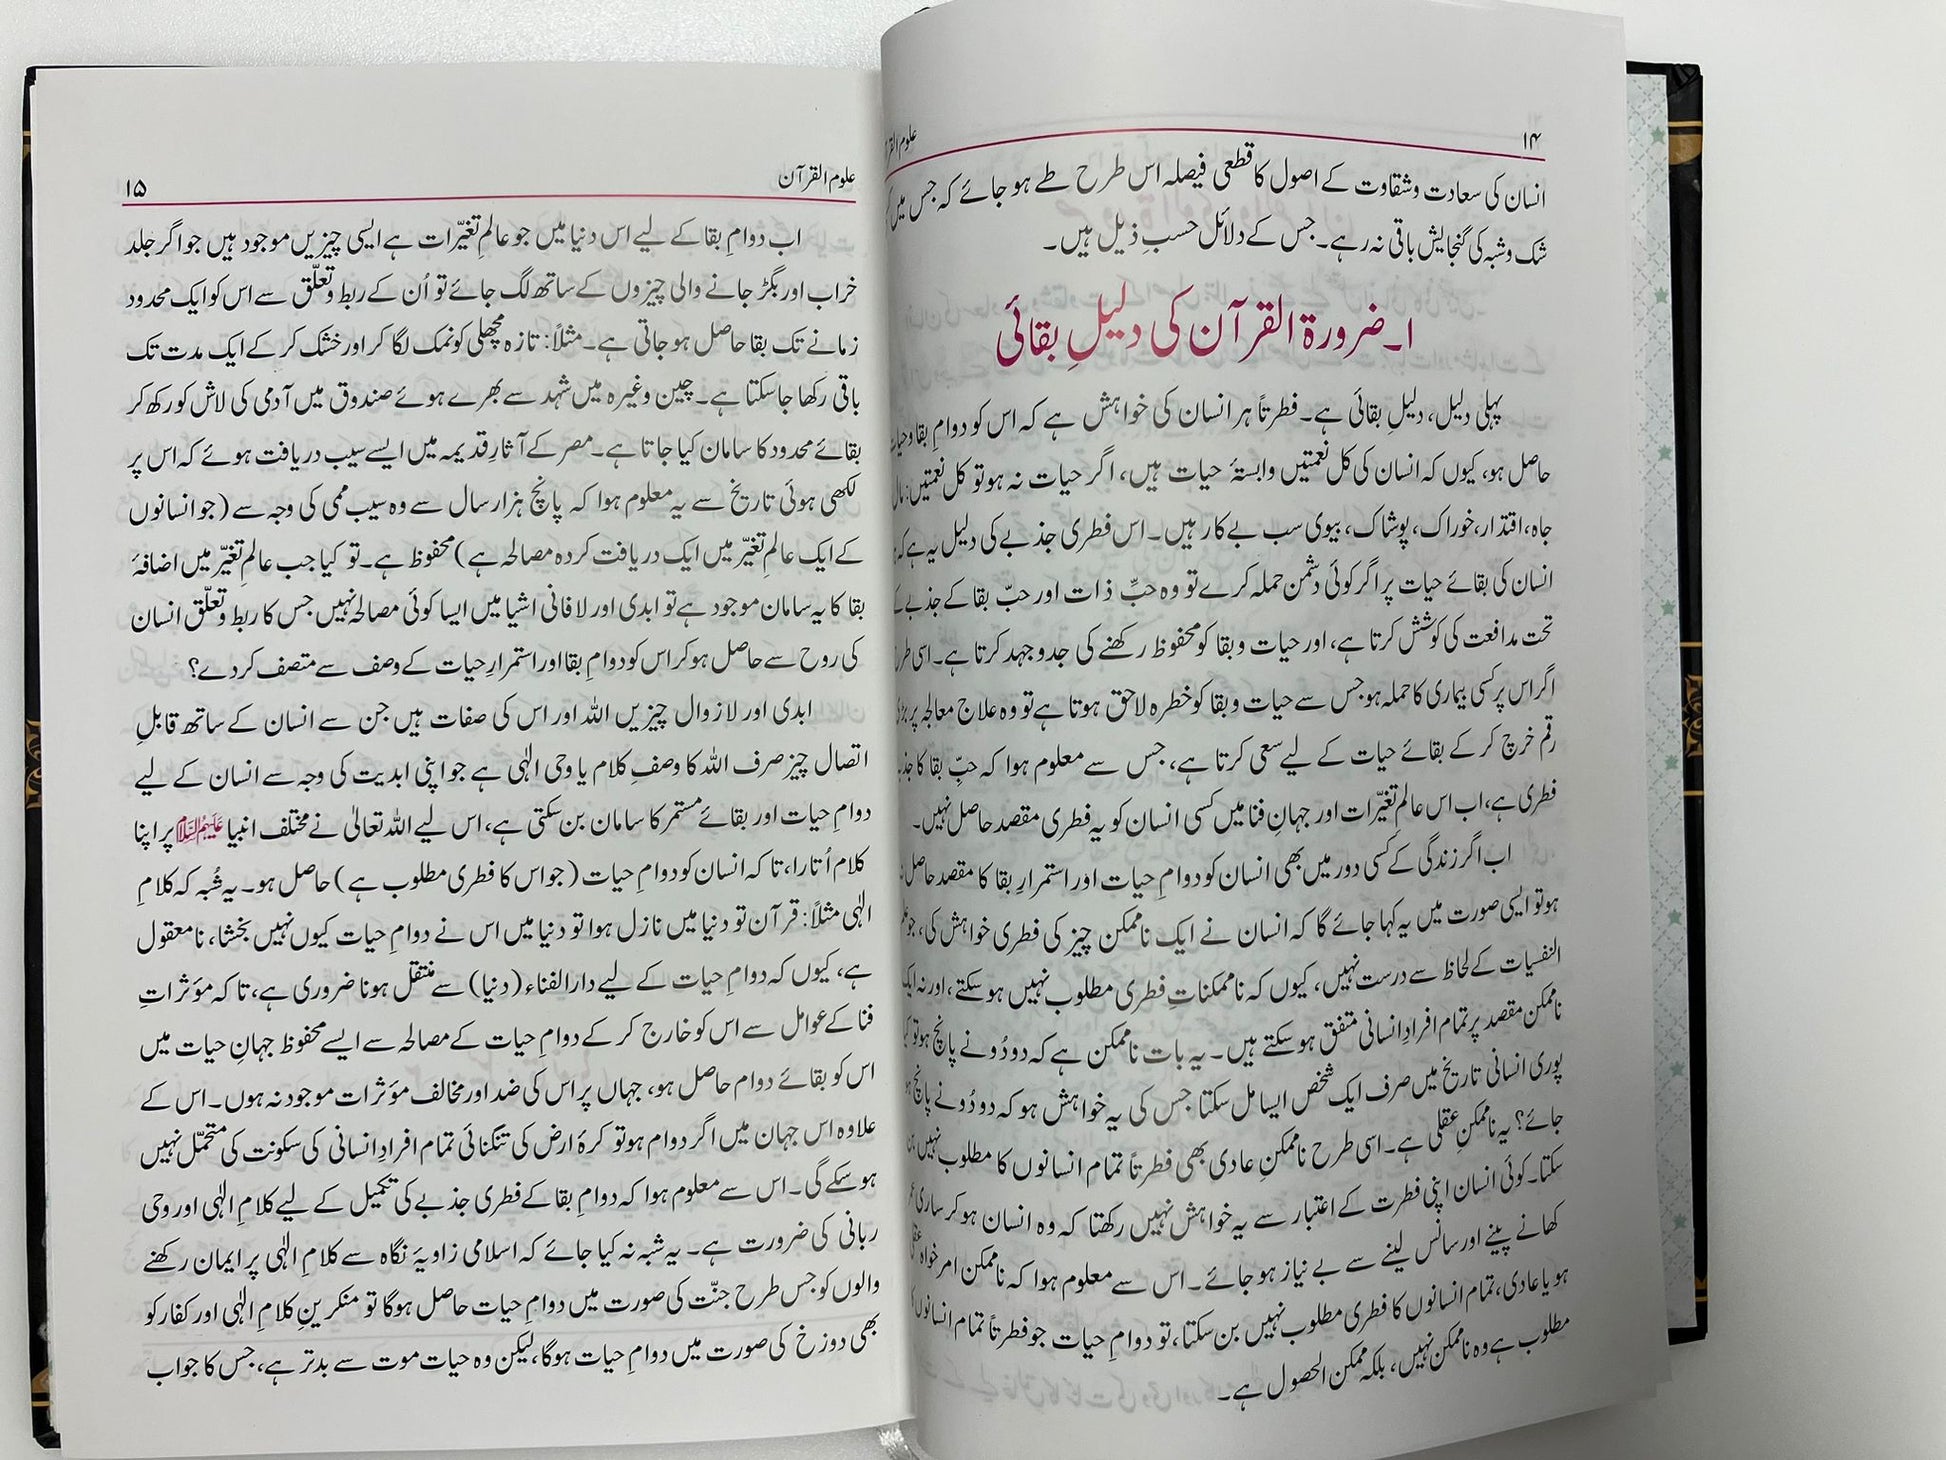 ۱۴
علوم القر
انسان کی سعادت وشقاوت کے اصول کا قطعی فیصلہ اس طرح طے ہو جائے کہ جس میں
شک وشبہ کی گنجایش باقی نہ رہے۔ جس کے دلائل حسبِ ذیل ہیں۔
۱۔ ضرورۃ القرآن کی دلیلِ بقائی
پہلی دلیل، دلیلِ بقائی ہے۔ فطرتاً ہر انسان کی خواہش ہے کہ اس کو دوامِ بقا وحیات
حاصل ہو، کیوں کہ انسان کی کل نعمتیں وابستۂ حیات ہیں، اگر حیات نہ ہو تو کل نعمتیں: مال
جاہ، اقتدار، خوراک، پوشاک، بیوی سب بے کار ہیں۔ اس فطری جذبے کی دلیل یہ ہے کہ
انسان کی بقائے حیات پر اگر کوئی دشمن حملہ کرے تو وہ حبِّ ذات اور حبّ بقا کے جذبے
تحت مدافعت کی کوشش کرتا ہے، اور حیات وبقا کو محفوظ رکھنے کی جدوجہد کرتا ہے۔ اسی طرح
اگر اس پر کسی بیماری کا حملہ ہو جس سے حیات وبقا کو خطرہ لاحق ہوتا ہے تو وہ علاج معالجہ پر
رقم خرچ کر کے بقائے حیات کے لیے سعی کرتا ہے، جس سے معلوم ہوا کہ حبِّ بقا کا
فطری ہے، اب اس عالم تغیّرات اور جہانِ فنا میں کسی انسان کو یہ فطری مقصد حاصل نہیں۔
اب اگر زندگی کے کسی دور میں بھی انسان کو دوامِ حیات اور استمرارِ بقا کا مقصد حاصل
ہو تو ایسی صورت میں یہ کہا جائے گا کہ انسان نے ایک ناممکن چیز کی فطری خواہش کی، جو
النفسیات کے لحاظ سے درست نہیں، کیوں کہ ناممکناتِ فطری مطلوب نہیں ہو سکتے، اور نہ ایک
ناممکن مقصد پر تمام افرادِ انسانی متفق ہو سکتے ہیں۔ یہ بات ناممکن ہے کہ دو دُونے پانچ ہو تو
پوری انسانی تاریخ میں صرف ایک شخص ایسا مل سکتا جس کی یہ خواہش ہو کہ دو دُونے پانچ
جائے؟ یہ ناممکنِ عقلی ہے۔ اسی طرح ناممکنِ عادی بھی فطرتاً تمام انسانوں کا مطلوب نہیں
سکتا۔ کوئی انسان اپنی فطرت کے اعتبار سے یہ خواہش نہیں رکھتا کہ وہ انسان ہو کر ساری
کھانے پینے اور سانس لینے سے بے نیاز ہو جائے۔ اس سے معلوم ہوا کہ ناممکن امر خواہ
ہو یا عادی، تمام انسانوں کا فطری مطلوب نہیں بن سکتا، تو دوامِ حیات جو فطرتاً تمام انسانوں
مطلوب ہے وہ ناممکن نہیں، بلکہ ممکن الحصول ہے۔
علوم القرآن
۱۵
اب دوامِ بقا کے لیے اس دنیا میں جو عالمِ تغیّرات ہے ایسی چیزیں موجود ہیں جو اگر جلد
خراب اور بگڑ جانے والی چیزوں کے ساتھ لگ جائے تو اُن کے ربط وتعلّق سے اس کو ایک محدود
زمانے تک بقا حاصل ہو جاتی ہے۔ مثلاً: تازہ مچھلی کو نمک لگا کر اور خشک کر کے ایک مدت تک
باقی رکھا جا سکتا ہے۔ چین وغیرہ میں شہد سے بھرے ہوئے صندوق میں آدمی کی لاش کو رکھ کر
بقائے محدود کا سامان کیا جاتا ہے۔ مصر کے آثارِ قدیمہ میں ایسے سیب دریافت ہوئے کہ اس پر
لکھی ہوئی تاریخ سے یہ معلوم ہوا کہ پانچ ہزار سال سے وہ سیب ممی کی وجہ سے (جو انسانوں
کے ایک عالمِ تغیّر میں ایک دریافت کردہ مصالحہ ہے) محفوظ ہے۔ تو کیا جب عالمِ تغیّر میں اضافۂ
بقا کا یہ سامان موجود ہے تو ابدی اور لافانی اشیا میں ایسا کوئی مصالحہ نہیں جس کا ربط وتعلّق انسان
کی روح سے حاصل ہو کر اس کو دوامِ بقا اور استمرارِ حیات کے وصف سے متصف کر دے؟
ابدی اور لازوال چیزیں اللہ اور اس کی صفات ہیں جن سے انسان کے ساتھ قابلِ
اتصال چیز صرف اللہ کا وصفِ کلام یا وحی الٰہی ہے جو اپنی ابدیت کی وجہ سے انسان کے لیے
دوامِ حیات اور بقائے مستمر کا سامان بن سکتی ہے، اس لیے اللہ تعالیٰ نے مختلف انبیا علیہم السلام پر اپنا
کلام اُتارا، تا کہ انسان کو دوامِ حیات (جو اس کا فطری مطلوب ہے) حاصل ہو۔ یہ شُبہ کہ کلامِ
الٰہی مثلاً: قرآن تو دنیا میں نازل ہوا تو دنیا میں اس نے دوامِ حیات کیوں نہیں بخشا، نامعقول
ہے، کیوں کہ دوامِ حیات کے لیے دارالفناء (دنیا) سے منتقل ہونا ضروری ہے، تا کہ مؤثراتِ
فنا کے عوامل سے اس کو خارج کر کے دوامِ حیات کے مصالحہ سے ایسے محفوظ جہانِ حیات میں
اس کو بقائے دوام حاصل ہو، جہاں پر اس کی ضد اور مخالف مؤثرات موجود نہ ہوں۔ اس کے
علاوہ اس جہان میں اگر دوام ہو تو کرۂ ارض کی تنگنائی تمام افرادِ انسانی کی سکونت کی متحمّل نہیں
ہو سکے گی۔ اس سے معلوم ہوا کہ دوامِ بقا کے فطری جذبے کی تکمیل کے لیے کلامِ الٰہی اور وحی
ربانی کی ضرورت ہے۔ یہ شبہ نہ کیا جائے کہ اسلامی زاویۂ نگاہ سے کلامِ الٰہی پر ایمان رکھنے
والوں کو جس طرح جنّت کی صورت میں دوامِ حیات حاصل ہوگا تو منکرینِ کلامِ الٰہی اور کفار کو
بھی دوزخ کی صورت میں دوامِ حیات ہوگا، لیکن وہ حیات موت سے بدتر ہے، جس کا جواب